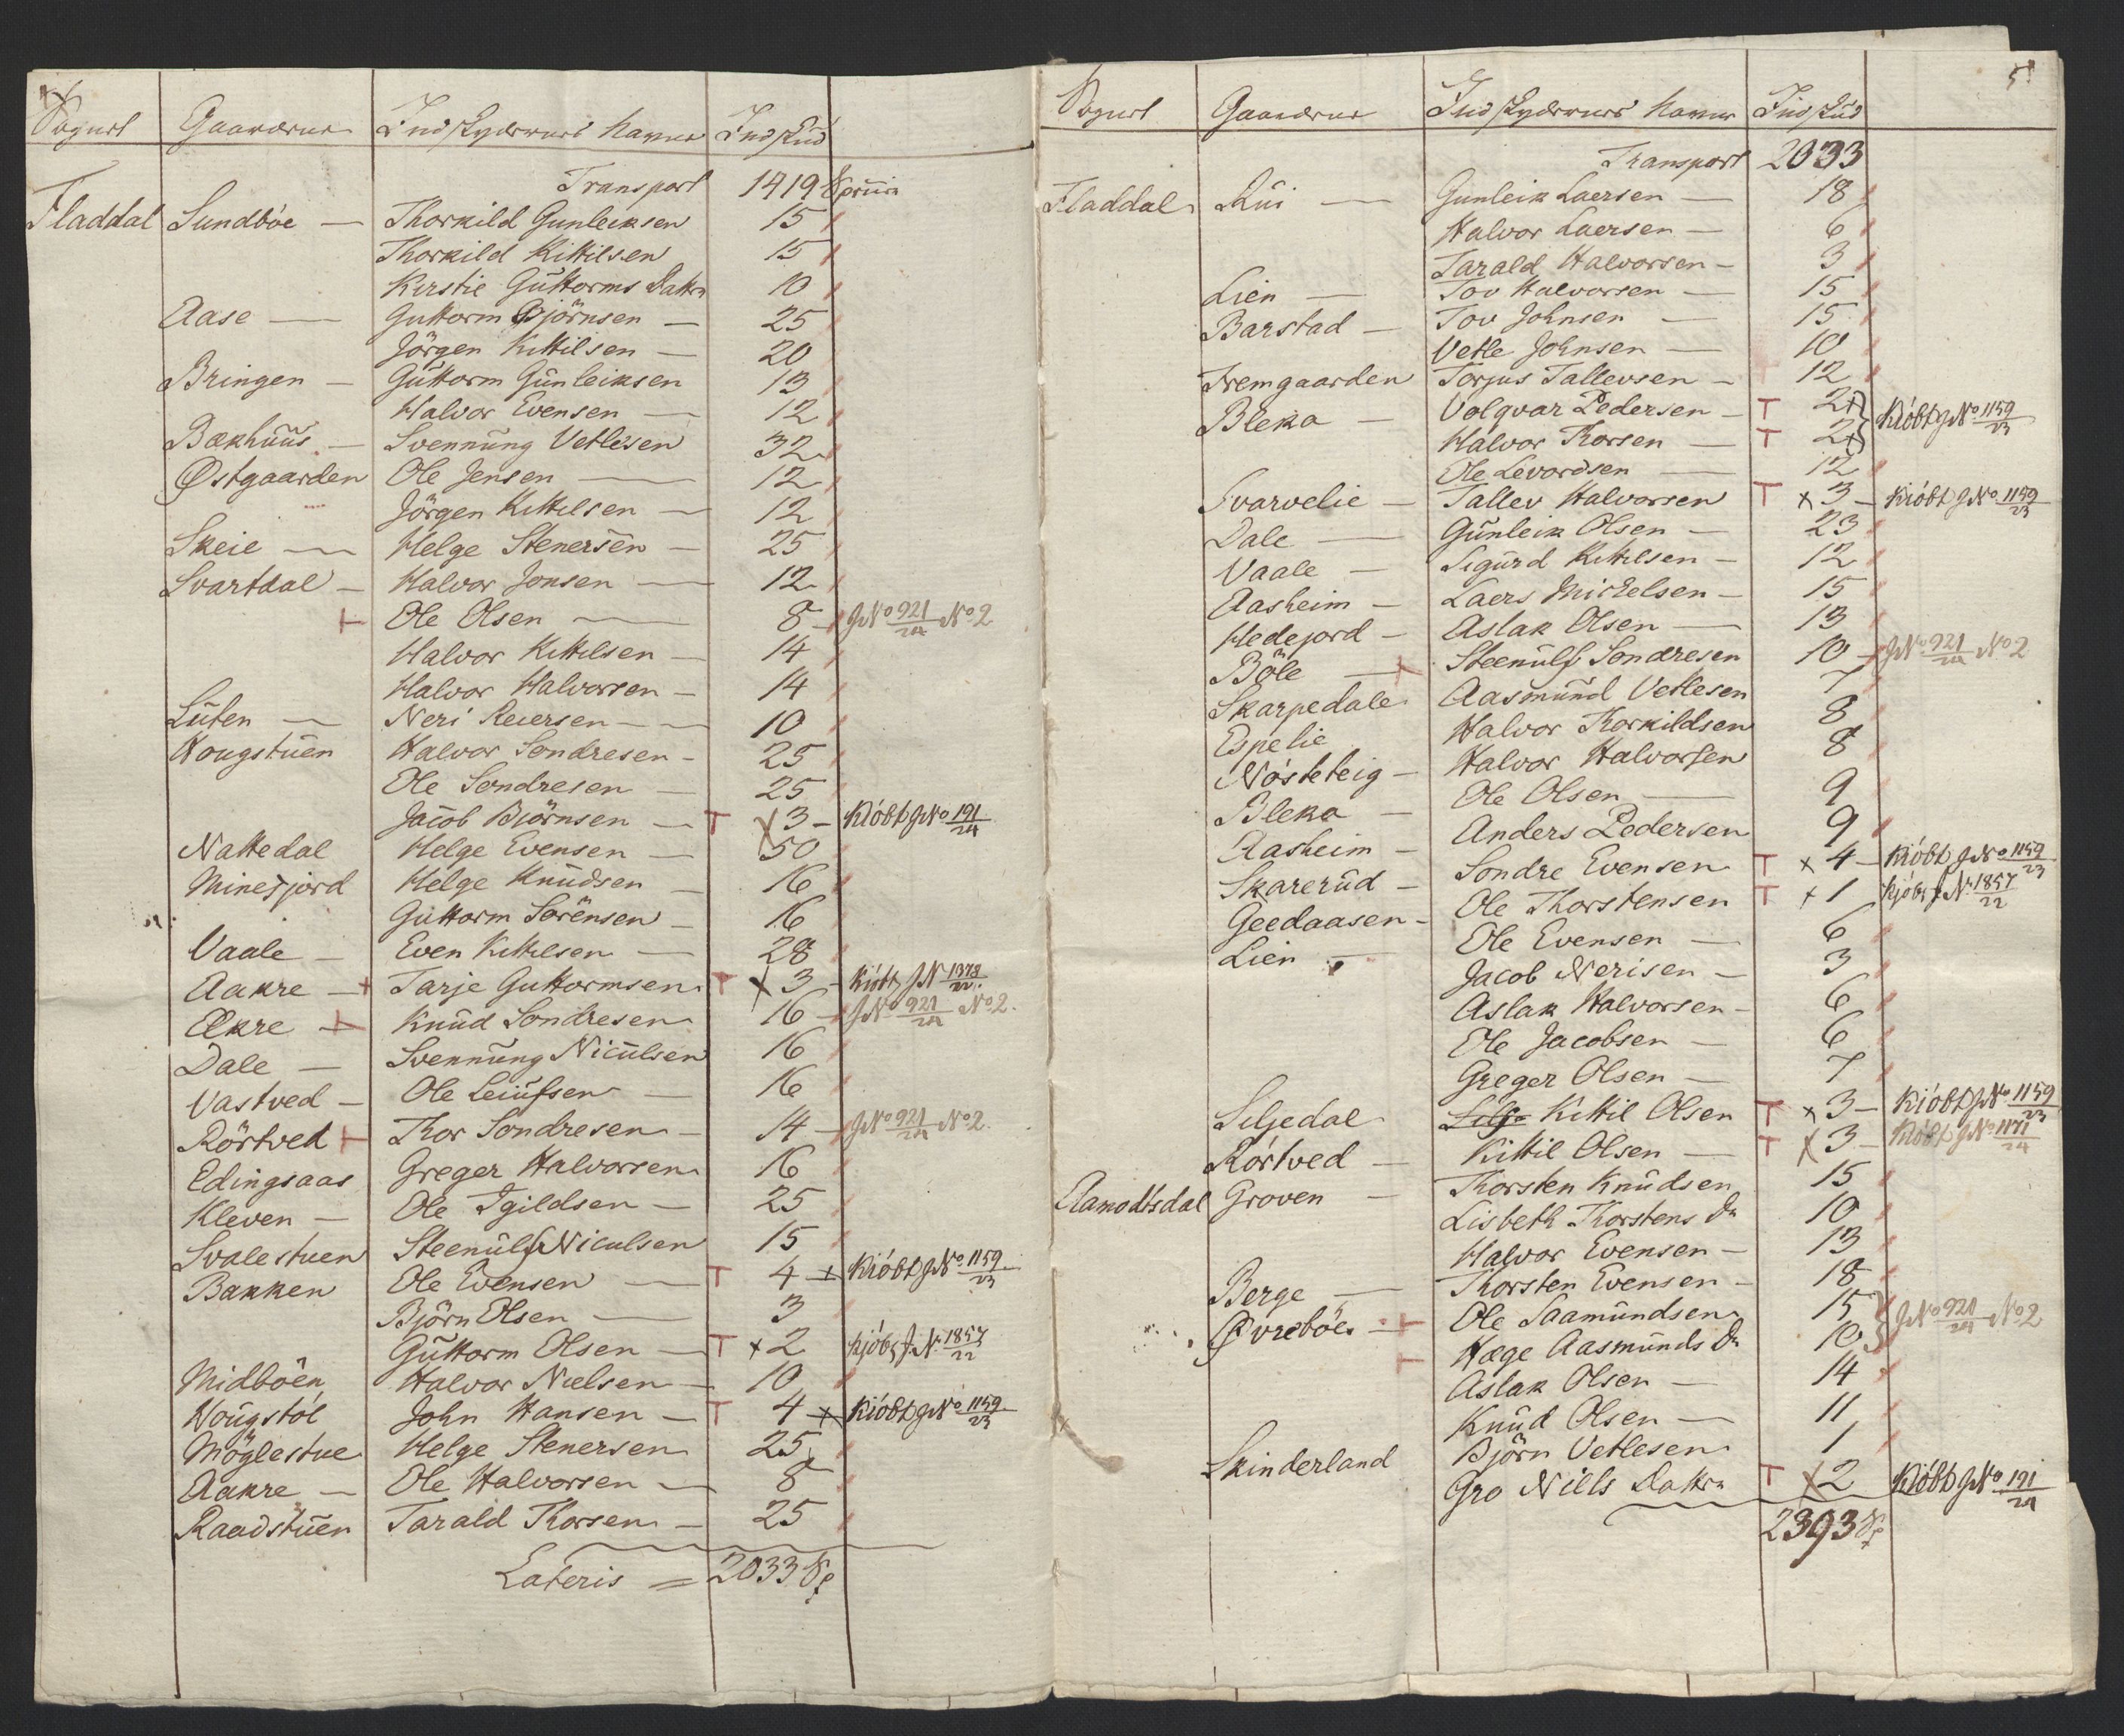 Sognet Gaardene Indskyderens Navne Indskud
Transport 1419 Spesier
Fladdal Sundböe — Thorkild Gunleiksen 15
Thorkild Kittilsen 15
Kirstie Guttorms Dattr 10
Aase — Guttorm Björnsen — 25
Jörgen Kittilsen — 20
Bringen — Guttorm Gunleiksen 13
Halvor Evensen — 12
Bækhuus — Svennung Vetlesen 32
Østgaarden Ole Jensen — 12
Jörgen Kittilsen — 12
Skeie — Helge Stenersen — 25
Svartdal — Halvor Jonsen — 12
T Ole Olsen — 8 — JNo 921/24 No 2
Halvor Kittilsen — 14
Halvor Halvorsen — 14
Luten — Neri Reiersen — 10
Hougstuen Halvor Sondresen — 25
Ole Sondresen — 25
Jacob Biörnsen — T x 3 — Kiöbt JNo 191/24
Nattedal Helge Evensen — 50
Minesjord Helge Knudsen — 16
Guttorm Sörensen — 16
Vaale — Even Kittilsen — 28
Aakre — + Tarje Guttormsen T x 3 — Kiöbt JN 1378/22
Ækre T Knud Sondresen 16 — JNo 921/24 No 2.
Dale — Svennung Niculsen 16
Vastved — Ole Leiufsen — 16
Rörtved T Thor Sondresen — 14 — JNo 921/24 No 2.
Edingsaas Greger Halvorsen 16
Kleven — Ole Igildsen — 25
Svalestuen Steenulf Niculsen 15
Bakken Ole Evensen — T 4 x Kiöbt JNo 1159/23
Björn Olsen — 3
Guttorm Olsen — T x 2 Kjöbt J.N. 1857/22
Midböen Halvor Nielsen — 10
Hougstöl John Hansen — T 4 x Kiöbt JNo 1159/23
Möglestue Helge Stenersen 25
Aakre — Ole Halvorsen — 8
Raadstuen Tarald Thorsen — 25
Lateris = 2033 Sp
5
Sognet Gaardene Indskyderens Navne Indskud
Transport 2033
Fladdal Rui — Gunleik Laersen — 18
Halvor Laersen — 6
Tarald Halvorsen — 3
Lien — Tov Halvorsen — 15
Barstad — Tov Johnsen — 15
Vetle Johnsen — 10
Fremgaarden Torjus Tallevsen — 12
Bleka — Volqvar Pedersen — T 2 x } Kiöbt JNo 1159/23
Halvor Thorsen — T 2 x }
Ole Levordsen — 12
Svarvelie — Tallev Halvorsen T x 3 — Kiöbt JNo 1159/23
Dale — Gunleik Olsen — 23
Vaale — Sigurd Kittilsen — 12
Aasheim — Laers Mickelsen — 15
Hedejord — Aslak Olsen — 13
Böle — T Steenulf Sondresen 10 — JNo 921/24 No 2
Skarpedale Aasmund Vetlesen 7
Espelie Halvor Thorkildsen 8
Nösteteig — Halvor Halvorsen 8
Bleka — Ole Olsen — 9
Aasheim — Anders Pedersen 9
Skarerud — Sondre Evensen T x 4 — Kiöbt JNo 1159/23
Geedaasen — Ole Thorstensen T x 1 Kjöbt J N. 1857/22
Lien — Ole Evensen — 6
Jacob Nerisen — 3
Aslak Halvorsen — 6
Ole Jacobsen — 6
Greger Olsen — 7
Seljedal Kittil Olsen T x 3 — Kiöbt JNo 1159/23
Rörtved — Kittil Olsen — T x 3 — Kiöbt JNo 1171/24
Aamodtsdal Groven — Thorsten Knudsen 15
Lisbeth Thorstens Dr 10
Halvor Evensen — 13
Berge — Thorsten Evensen — 18
Övreböe — T Ole Saamundsen 15 } JNo 921/24 No 2
T Hæge Aasmunds Dr 10 }
Aslak Olsen — 14
Knud Olsen — 11
Skinderland Björn Vetlesen 1
Gro Nills Dattr T x 2 Kiöbt JNo 191/24
2393 Sp